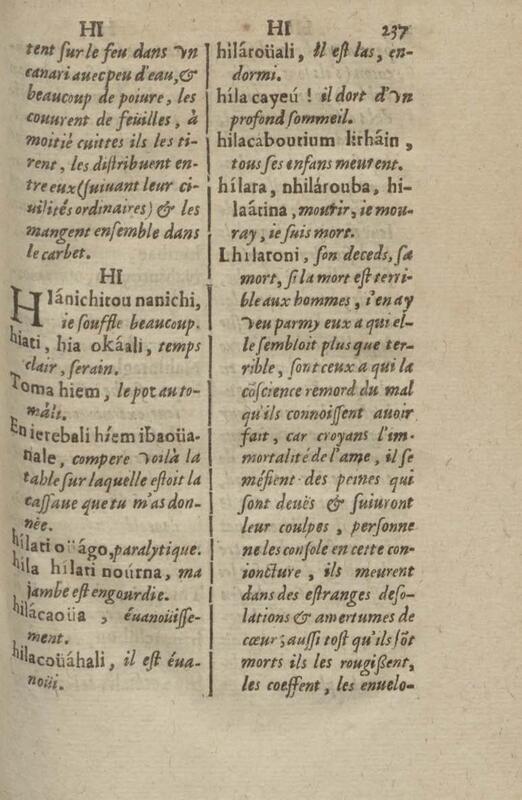 HI
HI
237
tent sur le feu dans vn
canari auec peu d'eau, &
beaucoup de poiure, les
couurent de feüilles, à
moitié cuittes ils les ti-
rent, les distribuent en-
tre eux (suiuant leur ci-
uilités ordinaires) & les
mangent ensemble dans
le carbet.
HI
HIánichitou nanichi,
ie souffle beaucoup.
hiati, hia okáali, temps
clair, serain.
Toma hiem, le pot au to-
máli.
En ierebali híem ibaoüa-
nale, compere voilà la
table sur laquelle estoit la
cassaue que tu m'as don-
née.
hílati oüágo, paralytique.
híla hílati noúrna, ma
jambe est engourdie.
hilácaoüa, éuanoüisse-
ment.
hilacoüáhali, il est éua-
noüi.
hilároüali, il est las, en-
dormi.
híla cayeú ! il dort d'vn
profond sommeil.
hilacaboutium lirháin,
tous ses enfans meurent.
hílara, nhilárouba, hi-
laátina, mourir, ie mou-
ray, ie suis mort.
Lhilaroni, son deceds, sa
mort, si la mort est terri-
ble aux hommes, i'en ay
veu parmy eux a qui el-
le sembloit plus que ter-
rible, sont ceux a qui la
cõscience remord du mal
qu'ils connoissent auoir
fait, car croyans l'im-
mortalité de l'ame, il se
méfient des peines qui
sont deuës & suiuront
leur coulpes, personne
ne les console en cette con-
ioncture, ils meurent
dans des estranges deso-
lations & amertumes de
cœur; aussi tost qu'ils sõt
morts ils les rougißent,
les coeffent, les enuelo-